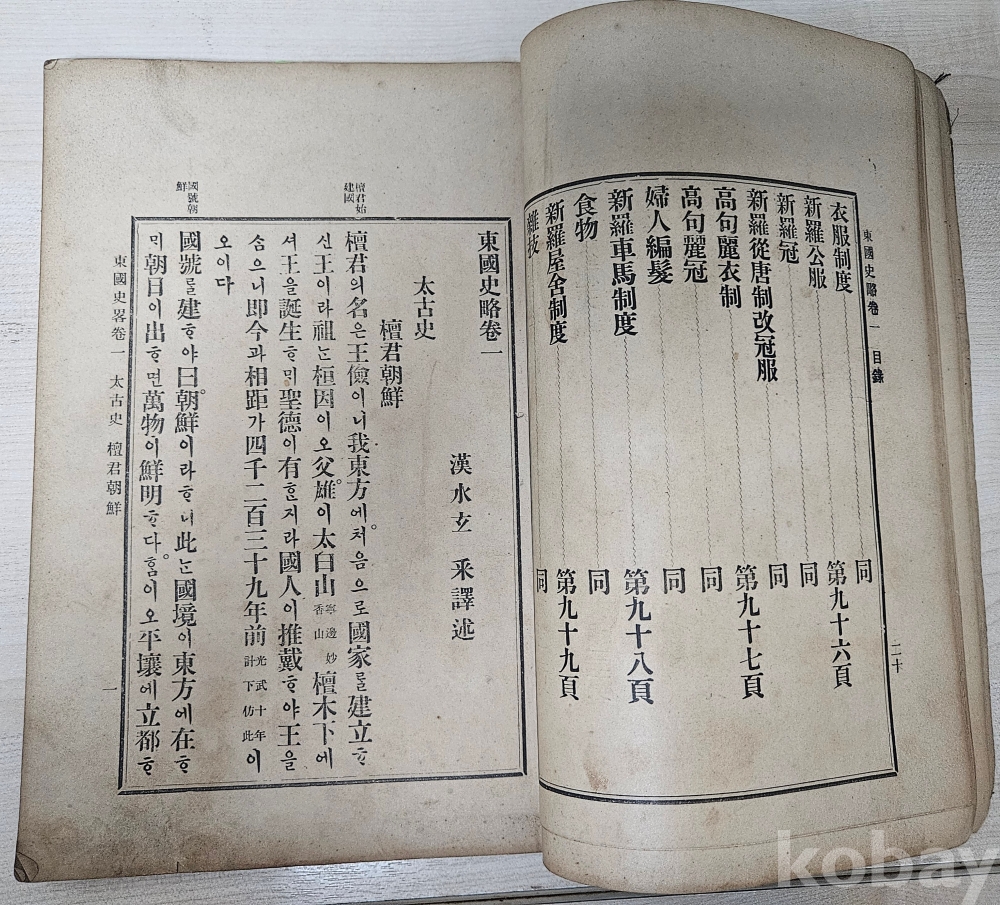 東國史略卷一 目錄 二十
衣服制度 同
新羅公服 第九十六頁
新羅冠 同
新羅從唐制改冠服 同
高句麗衣制 第九十七頁
高句麗冠 同
婦人編髮 同
新羅車馬制度 第九十八頁
食物 同
新羅屋舍制度 第九十九頁
雜技 同
東國史略卷一
漢水玄 采譯述
太古史
檀君朝鮮
檀君始建國
檀君의名은王儉이니我東方에처음으로國家를建立ᄒᆞ
신王이라祖ᄂᆞᆫ桓因이오父雄이太白山寧邊妙香山檀木下에
셔王을誕生ᄒᆞ미聖德이有ᄒᆞᆫ지라國人이推戴ᄒᆞ야王을
숨으니即今과相距가四千二百三十九年前光武十年計下仿此이
오이다
國號朝鮮
國號를建ᄒᆞ야曰朝鮮이라ᄒᆞ니此ᄂᆞᆫ國境이東方에在ᄒᆞ
미朝日이出ᄒᆞ면萬物이鮮明ᄒᆞ다ᄒᆞᆷ이오平壤에立都ᄒᆞ
東國史畧卷一 太古史 檀君朝鮮 一
kobay